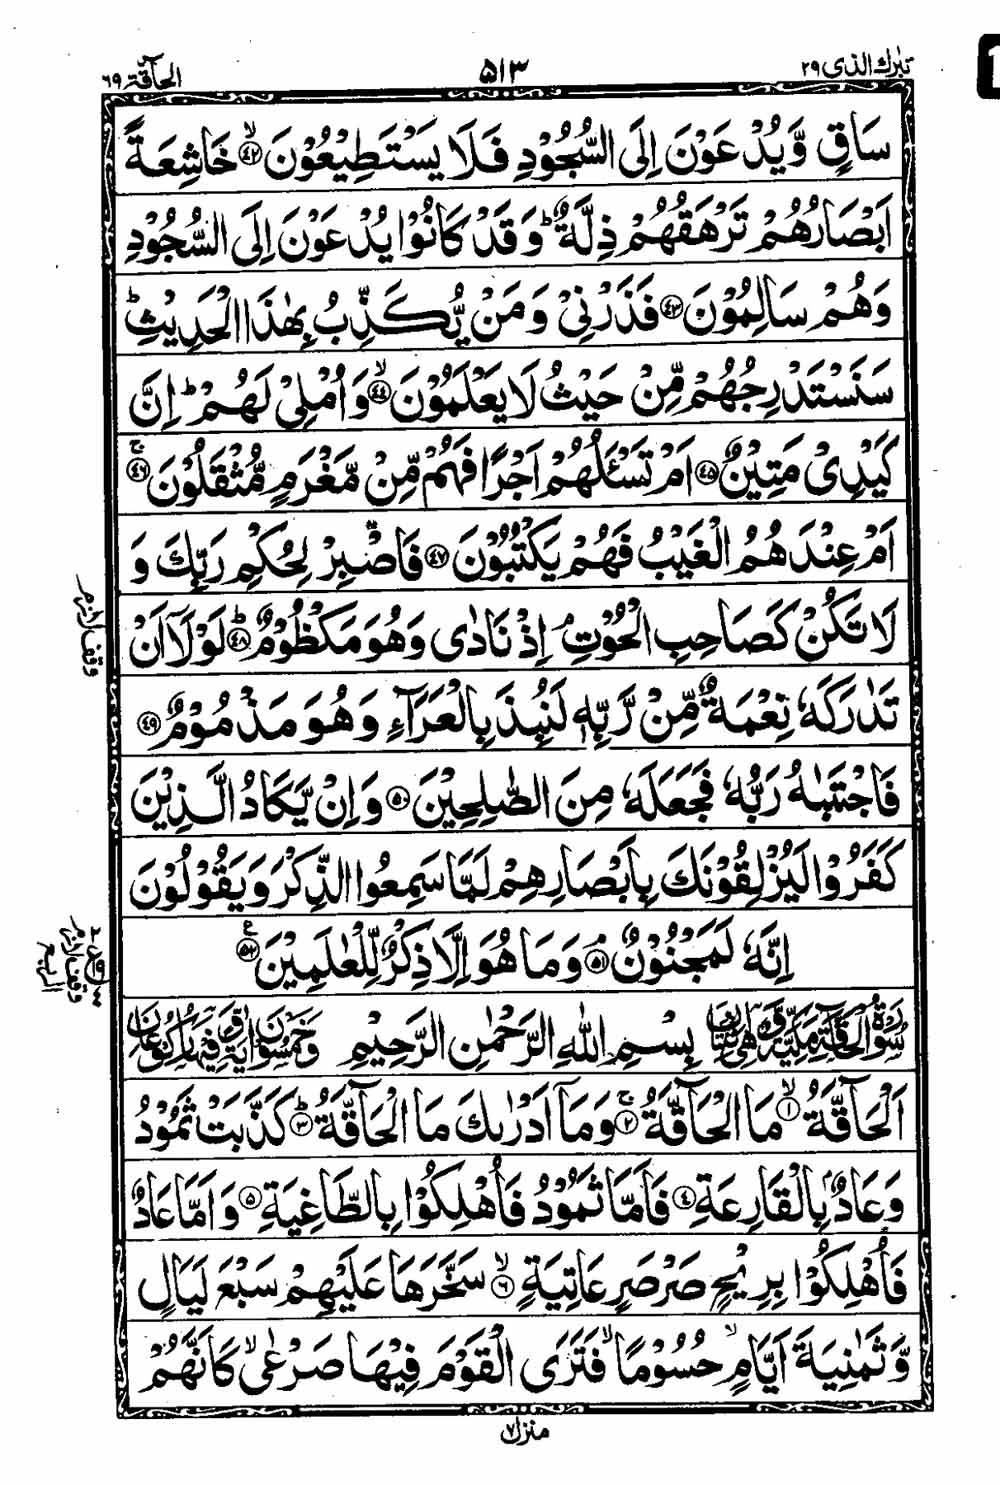 تبٰرك الذى ٢٩
٥١٣
الحآقة ٦٩
سَاقٍ وَّيُدْعَوْنَ اِلَى السُّجُوْدِ فَلَا يَسْتَطِيْعُوْنَ ﴿٤٢﴾ۙ خَاشِعَةً
اَبْصَارُهُمْ تَرْهَقُهُمْ ذِلَّةٌ ؕ وَقَدْ كَانُوْا يُدْعَوْنَ اِلَى السُّجُوْدِ
وَهُمْ سَالِمُوْنَ ﴿٤٣﴾ فَذَرْنِىْ وَمَنْ يُّكَذِّبُ بِهٰذَا الْحَدِيْثِ ؕ
سَنَسْتَدْرِجُهُمْ مِّنْ حَيْثُ لَا يَعْلَمُوْنَ ﴿٤٤﴾ۙ وَاُمْلِىْ لَهُمْ ؕ اِنَّ
كَيْدِىْ مَتِيْنٌ ﴿٤٥﴾ اَمْ تَسْـَٔلُهُمْ اَجْرًا فَهُمْ مِّنْ مَّغْرَمٍ مُّثْقَلُوْنَ ﴿٤٦﴾ۚ
اَمْ عِنْدَهُمُ الْغَيْبُ فَهُمْ يَكْتُبُوْنَ ﴿٤٧﴾ فَاصْبِرْ لِحُكْمِ رَبِّكَ وَ
لَا تَكُنْ كَصَاحِبِ الْحُوْتِ ۘ اِذْ نَادٰى وَهُوَ مَكْظُوْمٌ ﴿٤٨﴾ؕ لَوْلَاۤ اَنْ
تَدٰرَكَهٗ نِعْمَةٌ مِّنْ رَّبِّهٖ لَنُبِذَ بِالْعَرَآءِ وَهُوَ مَذْمُوْمٌ ﴿٤٩﴾
فَاجْتَبٰىهُ رَبُّهٗ فَجَعَلَهٗ مِنَ الصّٰلِحِيْنَ ﴿٥٠﴾ وَاِنْ يَّكَادُ الَّذِيْنَ
كَفَرُوْا لَيُزْلِقُوْنَكَ بِاَبْصَارِهِمْ لَمَّا سَمِعُوا الذِّكْرَ وَيَقُوْلُوْنَ
اِنَّهٗ لَمَجْنُوْنٌ ﴿٥١﴾ۘ وَمَا هُوَ اِلَّا ذِكْرٌ لِّلْعٰلَمِيْنَ ﴿٥٢﴾
سُوْرَةُ الْحَآقَّةِ مَكِّيَّةٌ وَّهِىَ بِسْمِ اللّٰهِ الرَّحْمٰنِ الرَّحِيْمِ وَّخَمْسُوْنَ اٰيَةً وَّفِيْهَا رُكُوْعَانِ
اَلْحَآقَّةُ ﴿١﴾ۙ مَا الْحَآقَّةُ ﴿٢﴾ۚ وَمَاۤ اَدْرٰىكَ مَا الْحَآقَّةُ ﴿٣﴾ؕ كَذَّبَتْ ثَمُوْدُ
وَعَادٌۢ بِالْقَارِعَةِ ﴿٤﴾ فَاَمَّا ثَمُوْدُ فَاُهْلِكُوْا بِالطَّاغِيَةِ ﴿٥﴾ وَاَمَّا عَادٌ
فَاُهْلِكُوْا بِرِيْحٍ صَرْصَرٍ عَاتِيَةٍ ﴿٦﴾ۙ سَخَّرَهَا عَلَيْهِمْ سَبْعَ لَيَالٍ
وَّثَمٰنِيَةَ اَيَّامٍ ۙ حُسُوْمًا ۙ فَتَرَى الْقَوْمَ فِيْهَا صَرْعٰى ۙ كَاَنَّهُمْ
وقف لازم
وقف لازم
منزل ٧